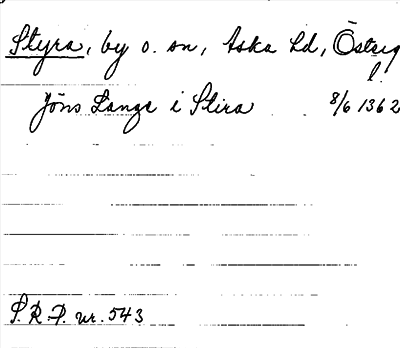 Styra, by o. sn, Aska hd, Österg
l.
Jöns Lange i Stira 8/6 1362
S.R.P. nr. 543